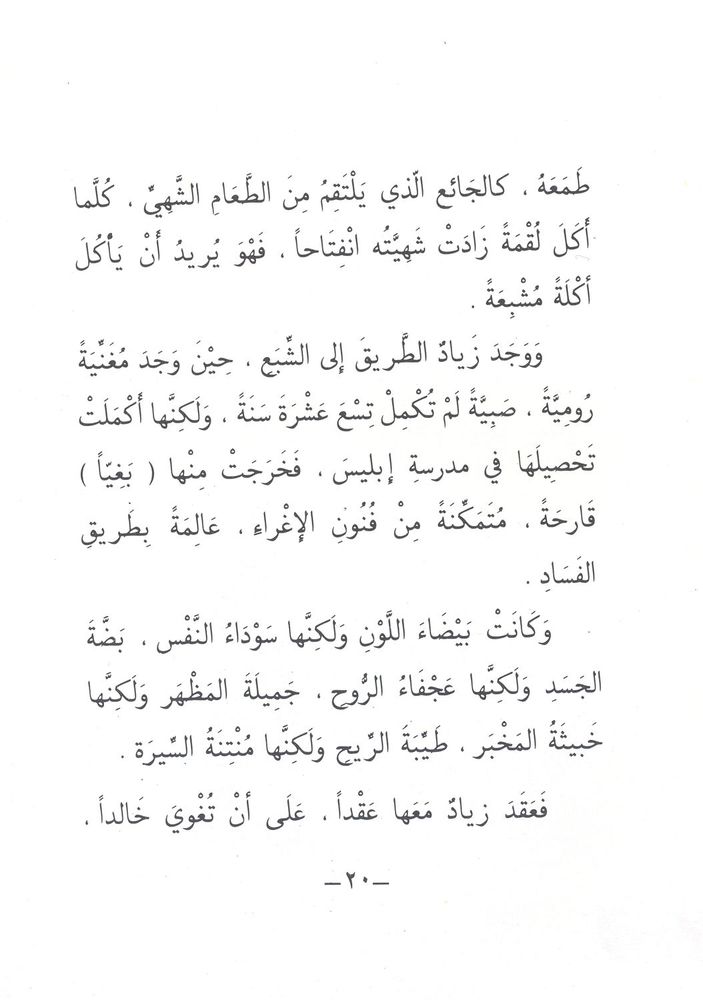 طَمَعَهُ ، كالجَائع الّذي يَلْتَقِمُ مِنَ الطَّعَامِ الشَّهِيِّ ، كُلَّما
أَكَلَ لُقْمَةً زَادَتْ شَهِيَّتُه انْفِتَاحاً ، فَهْوَ يُريدُ أَنْ يَأْكُلَ
أكْلَةً مُشْبِعَةً .
وَوَجَدَ زَيادٌ الطَّريقَ إلى الشِّبَعِ ، حِيْنَ وَجَدَ مُغَنِّيَةً
رُومِيَّةً ، صَبِيَّةً لَمْ تُكْمِلْ تِسْعَ عَشْرَةَ سَنَةً ، وَلَكِنَّها أَكْمَلَتْ
تَحْصِيلَهَا في مدرسةِ إبليسَ ، فَخَرَجَتْ مِنْها ( بَغِيّاً )
قَارحَةً ، مُتَمَكِّنَةً مِنْ فُنُونِ الإغْراءِ ، عَالِمَةً بِطَريقِ
الفَسَادِ .
وَكَانَتْ بَيْضَاءَ اللَّوْنِ وَلَكِنَّها سَوْدَاءُ النَّفْس ، بَضَّةَ
الجَسَدِ وَلَكِنَّها عَجْفَاءُ الرُّوحِ ، جَمِيلَةَ المَظْهَر وَلَكِنَّها
خَبيثَةُ المَخْبَر ، طَيِّبَةَ الرِّيحِ وَلَكِنَّها مُنْتِنَةُ السِّيرَة .
فَعَقَدَ زيادٌ مَعَها عَقْداً ، عَلَى أنْ تُغْويَ خَالداً ،
—٢٠—